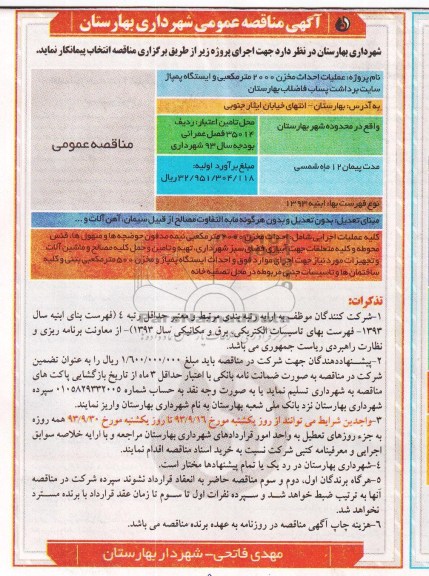 آگهی مناقصه عمومی شهرداری بهارستان
شهرداری بهارستان در نظر دارد جهت اجرای پروژه زیر از طریق برگزاری مناقصه انتخاب پیمانکار نماید.
نام پروژه: عملیات احداث مخزن ۲۰۰۰ مترمکعبی و ایستگاه پمپاژ
سایت برداشت پساب فاضلاب بهارستان
مناقصه عمومی
به آدرس: بهارستان - انتهای خیابان ایثار جنوبی
واقع در محدوده شهر بهارستان
محل تامین اعتبار: ردیف
۳۵۰۱۴ فصل عمرانی
بودجه سال ۹۳ شهرداری
مدت پیمان ۱۲ ماه شمسی
مبلغ برآورد اولیه:
۳۲/۹۵۱/۳۰۴/۱۱۸ ریال
نوع فهرست بها: ابنیه ۱۳۹۳
مبنای تعدیل: بدون تعدیل و بدون هرگونه مابه التفاوت مصالح از قبیل سیمان، آهن آلات و ...
کلیه عملیات اجرایی شامل: احداث مخزن ۲۰۰۰ مترمکعبی نیمه مدفون حوضچه ها و منهول ها، فنس
محوطه و کلیه متعلقات جهت آبیاری فضای سبز شهرداری، تهیه و تامین و حمل کلیه مصالح و ماشین آلات
و تجهیزات مورد نیاز جهت اجرای موارد فوق و احداث ایستگاه پمپاژ و مخزن ۵۰۰ مترمکعبی بتنی و کلیه
ساختمان ها و تاسیسات جنبی مربوطه در محل تصفیه خانه
تذکرات:
۱-شرکت کنندگان موظف به ارایه رتبه بندی مرتبط و معتبر حداقل رتبه ۴ (فهرست بنای ابنیه سال
۱۳۹۳- فهرست بهای تاسیسات الکتریکی، برق و مکانیکی سال ۱۳۹۳)- از معاونت برنامه ریزی و
نظارت راهبردی ریاست جمهوری می باشد.
۲-پیشنهاددهندگان جهت شرکت در مناقصه باید مبلغ ۱/۶۰۰/۰۰۰/۰۰۰ ریال را به عنوان تضمین
شرکت در مناقصه به صورت ضمانت نامه بانکی با اعتبار حداقل ۳ ماه از تاریخ بازگشایی پاکت های
مناقصه به شهرداری تسلیم نماید یا به صورت وجه نقد به حساب شماره ۰۱۰۵۸۲۹۳۳۲۰۰۵ سپرده
شهرداری بهارستان نزد بانک ملی شعبه بهارستان به نام شهرداری بهارستان واریز نمایند.
۳-واجدین شرایط می توانند از روز یکشنبه مورخ ۹۳/۹/۱۶ تا روز یکشنبه مورخ ۹۳/۹/۳۰ همه روزه
به جزء روزهای تعطیل به واحد امور قراردادهای شهرداری بهارستان مراجعه و با ارایه خلاصه سوابق
اجرایی و معرفینامه کتبی شرکت نسبت به خرید اسناد مناقصه اقدام نمایند.
۴-شهرداری بهارستان در رد یک یا تمام پیشنهادها مختار است.
۵-هرگاه برندگان اول، دوم و سوم مناقصه حاضر به انعقاد قرارداد نشوند سپرده شرکت در مناقصه
آنها به ترتیب ضبط خواهد شد و سپرده نفرات اول تا سوم تا زمان عقد قرارداد با برنده مسترد
نخواهد شد.
۶-هزینه چاپ آگهی مناقصه در روزنامه به عهده برنده مناقصه می باشد.
مهدی فاتحی- شهردار بهارستان